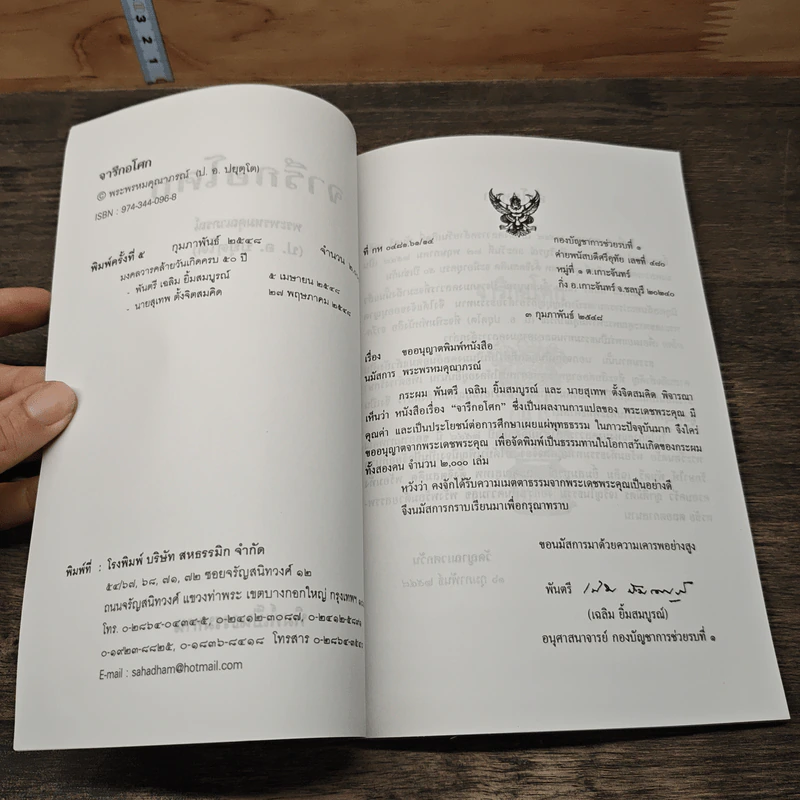 จารึกอโศก
© พระพรหมคุณาภรณ์ (ป. อ. ปยุตฺโต)
ISBN : 974-344-096-8
พิมพ์ครั้งที่ ๕ กุมภาพันธ์ ๒๕๔๘ จำนวน
มงคลวารคล้ายวันเกิดครบ ๕๐ ปี
- พันตรี เฉลิม ยิ้มสมบูรณ์ ๕ เมษายน ๒๕๔๘
- นายสุเทพ ตั้งจิตสมคิด ๒๗ พฤษภาคม ๒๕๔๘
พิมพ์ที่ : โรงพิมพ์ บริษัท สหธรรมิก จำกัด
๕๔/๖๗, ๖๘, ๗๑, ๗๒ ซอยจรัญสนิทวงศ์ ๑๒
ถนนจรัญสนิทวงศ์ แขวงท่าพระ เขตบางกอกใหญ่ กรุงเทพฯ
โทร. ๐-๒๘๖๔-๐๔๓๔-๕, ๐-๒๔๑๒-๓๐๘๗,
๐-๑๙๒๓-๘๘๒๕, ๐-๑๘๓๖-๘๔๑๘ โทรสาร
E-mail : sahadham@hotmail.com
ที่ กห ๐๔๘๑.๖๑/๑๔
กองบัญชาการช่วยรบที่ ๑
ค่ายพนัสบดีศรีอุทัย เลขที่ ๔๘๐
หมู่ที่ ๑ ต.เกาะจันทร์
กิ่ง อ.เกาะจันทร์ จ.ชลบุรี ๒๐๒๔๐
๓ กุมภาพันธ์ ๒๕๔๘
เรื่อง ขออนุญาตพิมพ์หนังสือ
นมัสการ พระพรหมคุณาภรณ์
กระผม พันตรี เฉลิม ยิ้มสมบูรณ์ และ นายสุเทพ ตั้งจิตสมคิด พิจารณา
เห็นว่า หนังสือเรื่อง “จารึกอโศก” ซึ่งเป็นผลงานการแปลของ พระเดชพระคุณ มี
คุณค่า และเป็นประโยชน์ต่อการศึกษาเผยแผ่พุทธธรรม ในภาวะปัจจุบันมาก จึงใคร่
ขออนุญาตจากพระเดชพระคุณ เพื่อจัดพิมพ์เป็นธรรมทานในโอกาสวันเกิดของกระผม
ทั้งสองคน จำนวน ๒,๐๐๐ เล่ม
หวังว่า คงจักได้รับความเมตตาธรรมจากพระเดชพระคุณเป็นอย่างดี
จึงนมัสการกราบเรียนมาเพื่อกรุณาทราบ
ขอนมัสการมาด้วยความเคารพอย่างสูง
พันตรี
(เฉลิม ยิ้มสมบูรณ์)
อนุศาสนาจารย์ กองบัญชาการช่วยรบที่ ๑